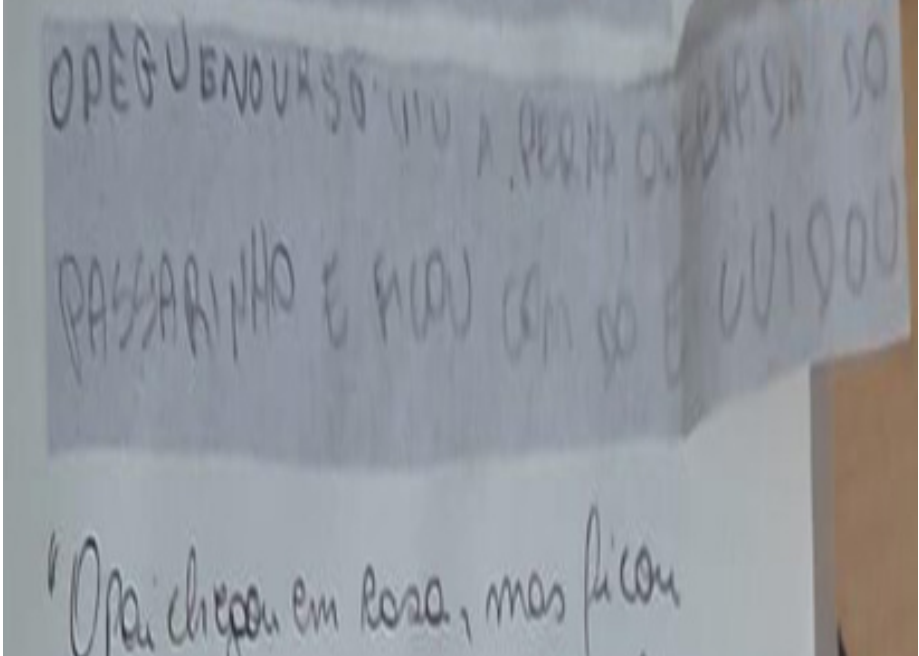 OPEGUENOURSO VIU A PERNA QUEBRADA DO
PASSARINHO E FICOU COM DÓ E CUIDOU
"O pai chegou em casa, mas ficou